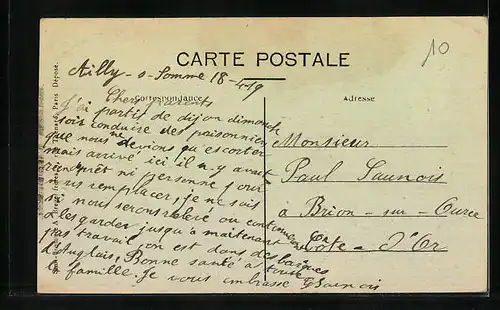 CARTE POSTALE
10
Ailly-s-Somme 18-4-19
Correspondance
Adresse
Chers parents
J'ai partit de dijon dimanche
soir conduire des prisonniers
que nous ne devions qu'escorter
mais arrivé ici il n-y avait
rien de prêt ni personne pour
nous remplacer, je ne sais
si nous serons relevé ou continuerons
a les garder jusqu'a maitenant on
pas travail on est dans des baraques
d'Anglais, Bonne santé à toute
la famille. Je vous embrasse
Monsieur
Paul Saunois
à Brion-sur-Ource
Côte-d'Or
Paris Déposé.